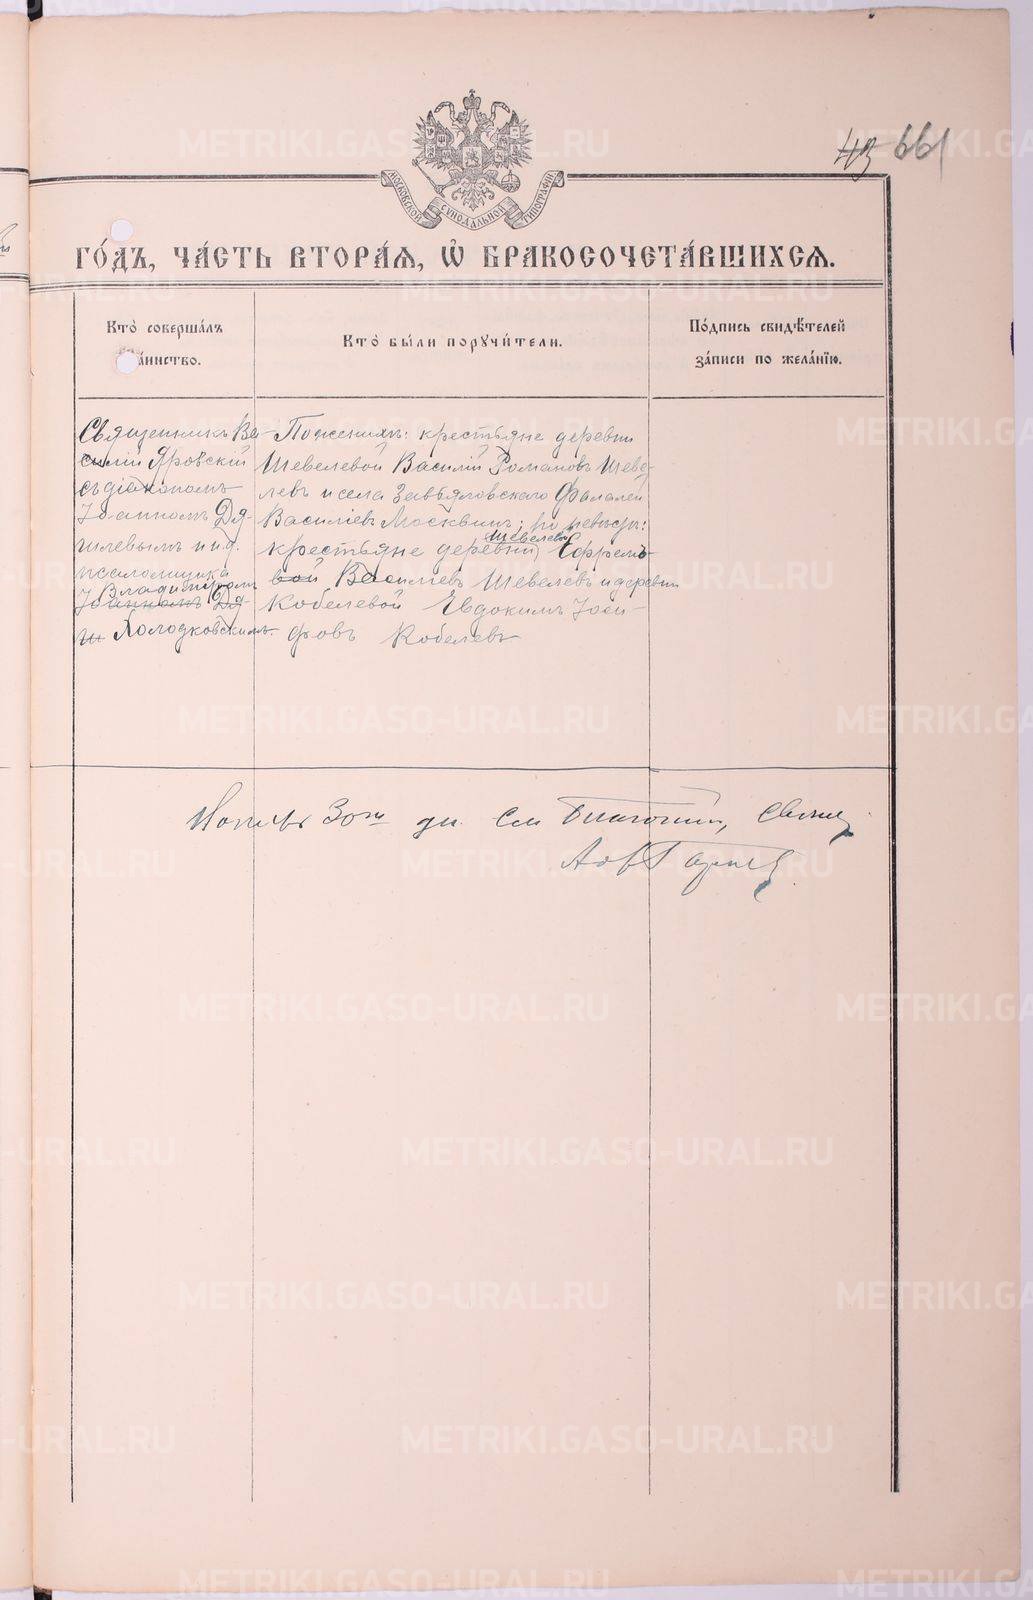 43 661
МОСКОВСКОЙ СѴНОДАЛЬНОЙ ТИПОГРАФИИ
ГО́ДЪ, ЧА́СТЬ ВТОРА́Я, Ѡ҆ БРАКОСОЧЕТА́ВШИХСѦ.
Кто̀ соверша́лъ
та́инство.
Кто̀ бы́ли порꙋчи́тели.
По́дпись свидѣ́телей
за́писи по жела́нїю.
Священникъ Ва-
силій Яровскій
съ діакономъ
Іоанномъ Дя-
гилевымъ и и.д.
псаломщика
Владимиромъ
Іоанномъ Дя-
ги Холодковскимъ.
По женихѣ: крестьяне деревни
Шевелевой Василій Романовъ Шеве-
левъ и села Завьяловскаго Фалалей
Василіевъ Москвинъ; по невѣстѣ:
крестьяне деревни Шевелевой Ефремъ
вой Василіевъ Шевелевъ и деревни
Кобелевой Евдокимъ Іоси-
фовъ Кобелевъ
Ноябрь 30 дн. Благочинный, Священ.
METRIKI.GASO-URAL.RU